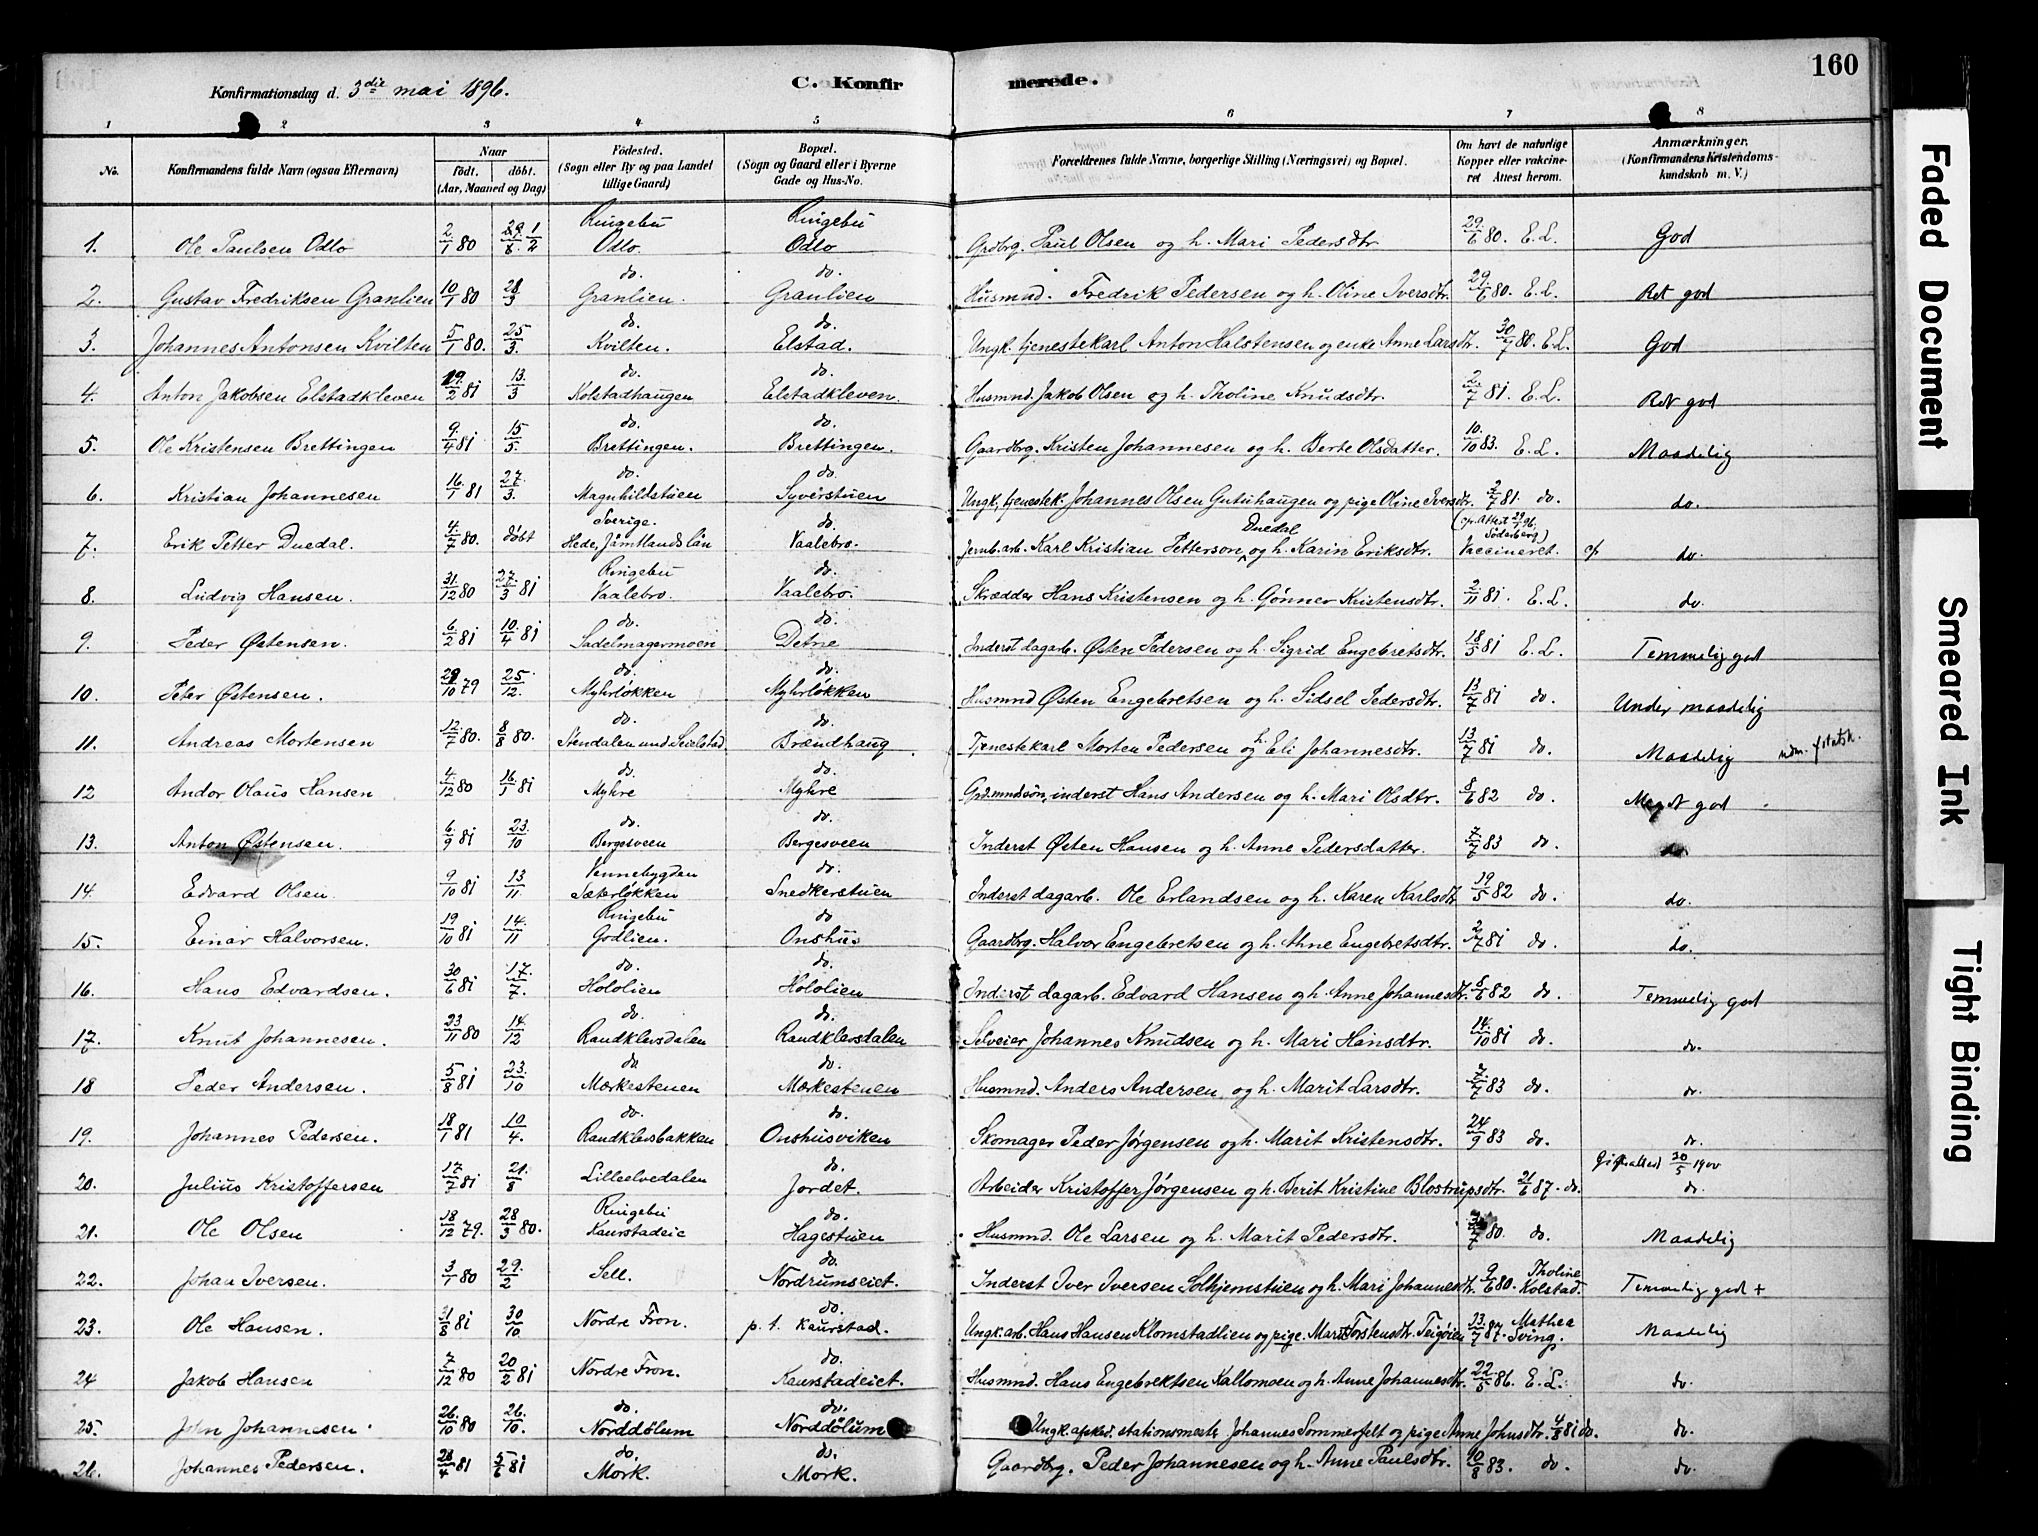 160
Konfirmationsdag d. 3die mai 1896.
C. Konfirmerede.
1 2 3 4. 5 6 7 8
No. Konfirmandens fulde Navn (ogsaa Efternavn) Naar födt. döbt. (Aar, Maaned og Dag) Födested. (Sogn eller By og paa Landet tillige Gaard) Bopæl. (Sogn og Gaard eller i Byerne Gade og Hus-No. Forældrenes fulde Navne, borgerlige Stilling (Næringsvei) og Bopæl. Om havt de naturlige Kopper eller vaccineret Attest herom. Anmærkninger. (Konfirmandens Kristendomskundskab m. V.)
1. Ole Paulsen Odlo 2/1 80 1/2 Ringebu Odlo. Ringebu Odlo Grdbrg. Paul Olsen og h. Mari Pedersdtr. 29/6 80. E.L. God
2. Gustav Fredriksen Granlien 10/1 80 28/3 do. Granlien. do. Granlien Husmnd. Fredrik Pedersen og h. Oline Iversdtr. 29/6 80. E.L. Ret god
3. Johannes Antonsen Kvilten 5/1 80. 25/3. do. Kvilten. do. Elstad. Ungk. tjenestekarl Anton Halstensen og enke Anne Larsdtr. 30/7 80. E.L. God
4. Anton Jakobsen Elstadkleven 19/2 81 13/3 do. Kolstadhaugen do. Elstadkleven. Husmnd. Jakob Olsen og h. Tholine Knudsdtr. 2/7 81. E.L. Ret god
5. Ole Kristensen Brettingen 9/4 81 15/5. do. Brettingen. do. Brettingen. Gaardbrg. Kristen Johannesen og h. Berte Olsdatter. 10/10 83. E.L. Maadelig
6. Kristian Johannesen 16/1 81 27/3. do. Magnhildstuen do. Syverstuen Ungk. tjenestek. Johannes Olsen Gutuhaugen og pige Oline Iversdtr. 2/7 81. do. do.
7. Erik Petter Duedal. 4/7 80. döbt Sverige. Hede, Jämtlands län do. Vaalebro. Jernb.arb. Karl Kristian Petterson Duedal og h. Karin Eriksdtr. (cfr. Attest 29/1 96. Söderberg) Vaccineret. cfr do.
8. Ludvig Hansen. 31/12 80 27/3 81 Ringebu Vaalebro. do. Vaalebro. Skrædder Hans Kristensen og h. Gönner Kristensdtr. 2/11 81. E.L. do.
9. Peder Østensen. 6/2 81 10/4 81 do. Sadelmagermoen do. Detrie Inderst dagarb. Østen Pedersen og h. Sigrid Engebretsdtr. 18/5 81 E.L. Temmelig god
10. Peter Østensen. 29/10 79 25/12. do. Myhrløkken do. Myhrløkken Husmnd Østen Engebretsen og h. Sidsel Pedersdtr. 13/7 81 do. Under maadelig
11. Andreas Mortensen 12/7 80. 8/8 80. do. Stendalen und Seielstad do. Brændhaug Tjenestekarl Morten Pedersen og h. Eli Johannesdtr. 13/7 81 do. Maadelig udm. f. statsk.
12 Andor Olaus Hansen 4/12 80 16/1 81 do. Myhre do. Myhre Grdmndssön, inderst Hans Andersen og h. Mari Olsdtr. 8/6 82 do. Meget god
13. Anton Østensen. 6/9 81 23/10 do. Bergesveen do. Bergesveen Inderst Østen Hansen og h. Anne Pedersdatter. 7/7 83 do. do.
14. Edvard Olsen. 9/10 81 13/11. Vennebygden Sæterløkken do. Snedkerstuen Inderst dagarb. Ole Erlandsen og h. Karen Karlsdtr 19/5 82 do. do.
15. Einar Halvorsen. 19/10 81 14/11 Ringebu Godlien. do. Onshus Gaardbrg. Halvor Engebretsen og h. Anne Engebretsdtr. 2/7 81 do. do.
16. Hans Edvardsen. 30/6 81 17/7. do. Hololien do. Hololien Inderst dagarb. Edvard Hansen og h. Anne Johannesdtr. 8/6 82 do. Temmelig god
17. Knut Johannesen. 23/11 80 14/12 do. Randklevsdalen do. Randklevsdalen Selveier Johannes Knudsen og h. Mari Hansdtr. 14/10 81 do. do.
18 Peder Andersen. 5/8 81 23/10 do Mærkestenen do. Mærkestenen Husmnd. Anders Andersen, og h. Marit Larsdtr. 7/7 83 do. do.
19. Johannes Pedersen. 18/1 81 10/4. do. Randklevsbakken do. Onshusviken Skomager Peder Jørgensen og h. Marit Kristensdtr. 24/9 83 do. do.
20. Julius Kristoffersen 17/7 81 21/8 Lilleelvedalen do. Jordet. Arbeider Kristoffer Jørgensen og h. Berit Kristine Blostrupsdtr. 21/6 87. do. Giftattest 30/5 1900 do.
21. Ole Olsen 18/12 79. 28/3 80. Ringebu Kaurstadeie do. Hagestuen Husmnd. Ole Larsen og h. Marit Pedersdtr. 80. do. Maadelig
22. Johan Iversen. 3/1 80 29/2 Sell. do. Nordrumseiet. Inderst Iver Iversen Solhjemstuen og h. Mari Johannesdtr. 9/6 80. Tholine Kolstad. Temmelig god +
23. Ole Hansen. 21/8 81 30/10 Nordre Fron. do. p. t. Kaurstad. Ungk. arb. Hans Hansen Klomstadlien og pige Marit Torstensdtr. Teigøien 13/7 87. Mathea Sving. Maadelig
24 Jakob Hansen 7/12 80 20/2 81 Nordre Fron. do. Kaurstadeiet. Husmnd. Hans Engebrektsen Kallomoen og h. Anne Johannesdtr. 22/5 86. E.L. do.
25. John Johannesen 26/10 80 26/10. do. Norddölum do. Norddölum Ungk. afsked. stationsmestr. Johannes Sommerfelt og pige Anne Johnsdtr. 4/8 81 do. do.
26. Johannes Pedersen. 28/4 81 5/6 81 do. Mork. do. Mork. Gaardbrg. Peder Johannesen og h. Anne Paulsdtr. 10/8 83. do. do.
Faded Document
Smeared Ink
Tight Binding